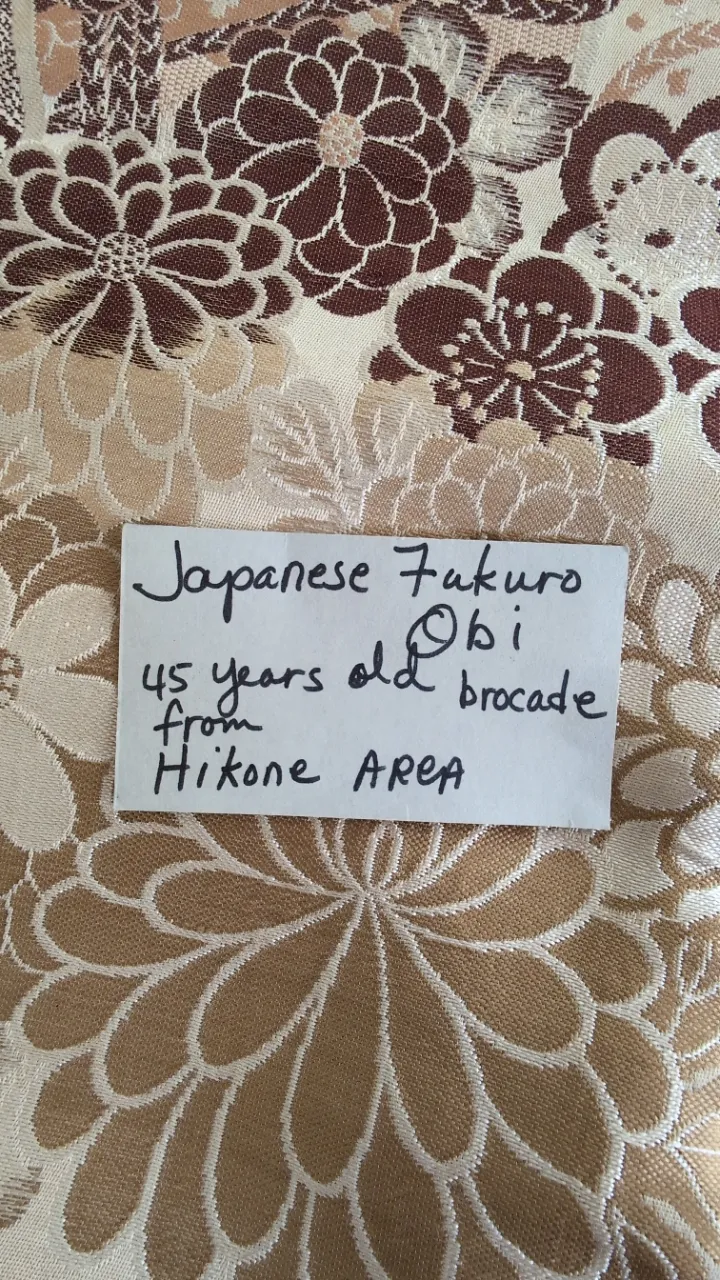 Japanese Fukuro
Obi
45 years old brocade
from
Hikone AREA